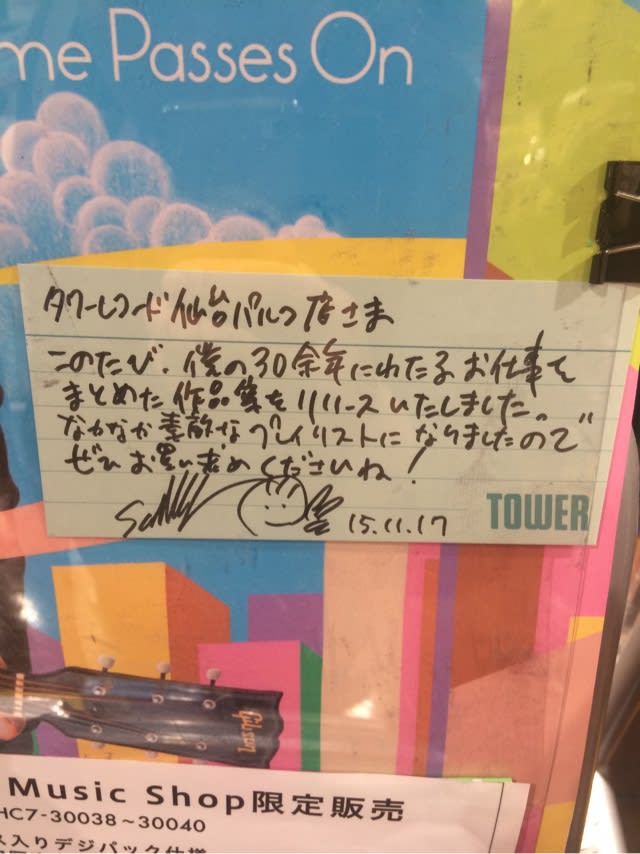 me Passes On
タワーレコード仙台パルコ店さま
このたび、僕の30余年にわたるお仕事を
まとめた作品集をリリースいたしました。
なかなか素敵なプレイリストになりましたので
ぜひお買い求めくださいね!
15.11.17
TOWER
Gibson
Music Shop限定販売
HC7-30038~30040
入りデジパック仕様